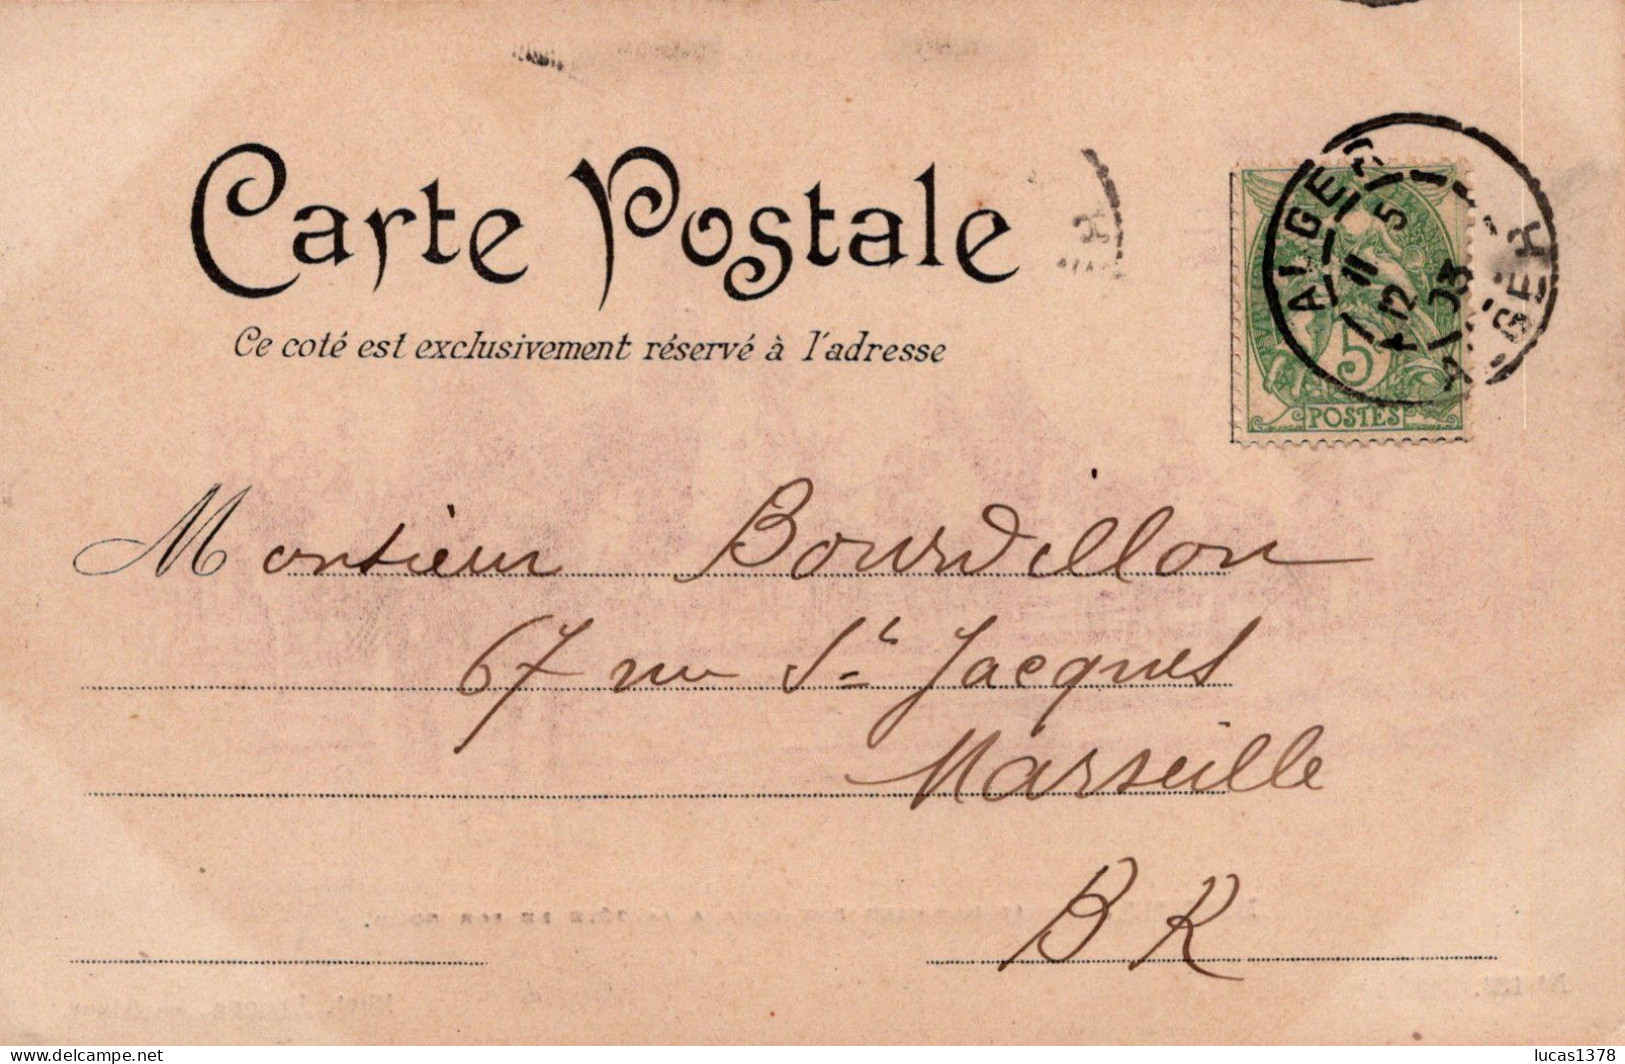 Carte Postale
Ce coté est exclusivement réservé à l'adresse
ALGER
11
12 5
03
ALGER
5
POSTES
Monsieur Bourdillon
67 rue St Jacques
Marseille
B R
www.delcampe.net
lucas1378